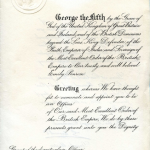 George the Fifth by the Grace
of God of the United Kingdom of Great Britain
and Ireland and of the British Dominions
beyond the Seas King, Defender of the
Faith, Emperor of India and Sovereign of
the Most Excellent Order of the British
Empire to Our trusty and well beloved
Emily
Greeting whereas We have thought
fit to nominate and appoint you to be
an Officer
of Our said Most Excellent Order of
the British Empire We do by these
presents grant unto you the Dignity